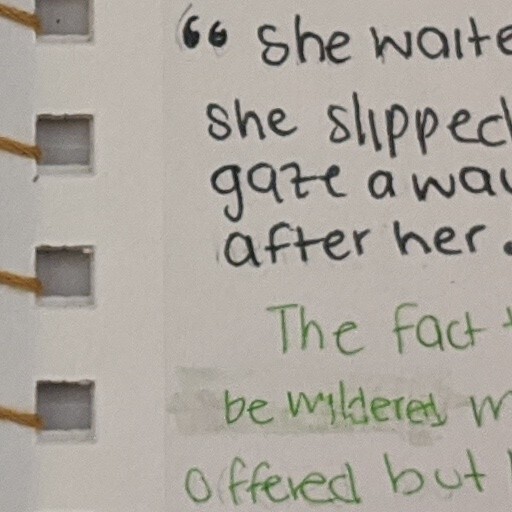 “ she waite
she slipped
gaze away
after her.
The fact t
be wildered m
offered but